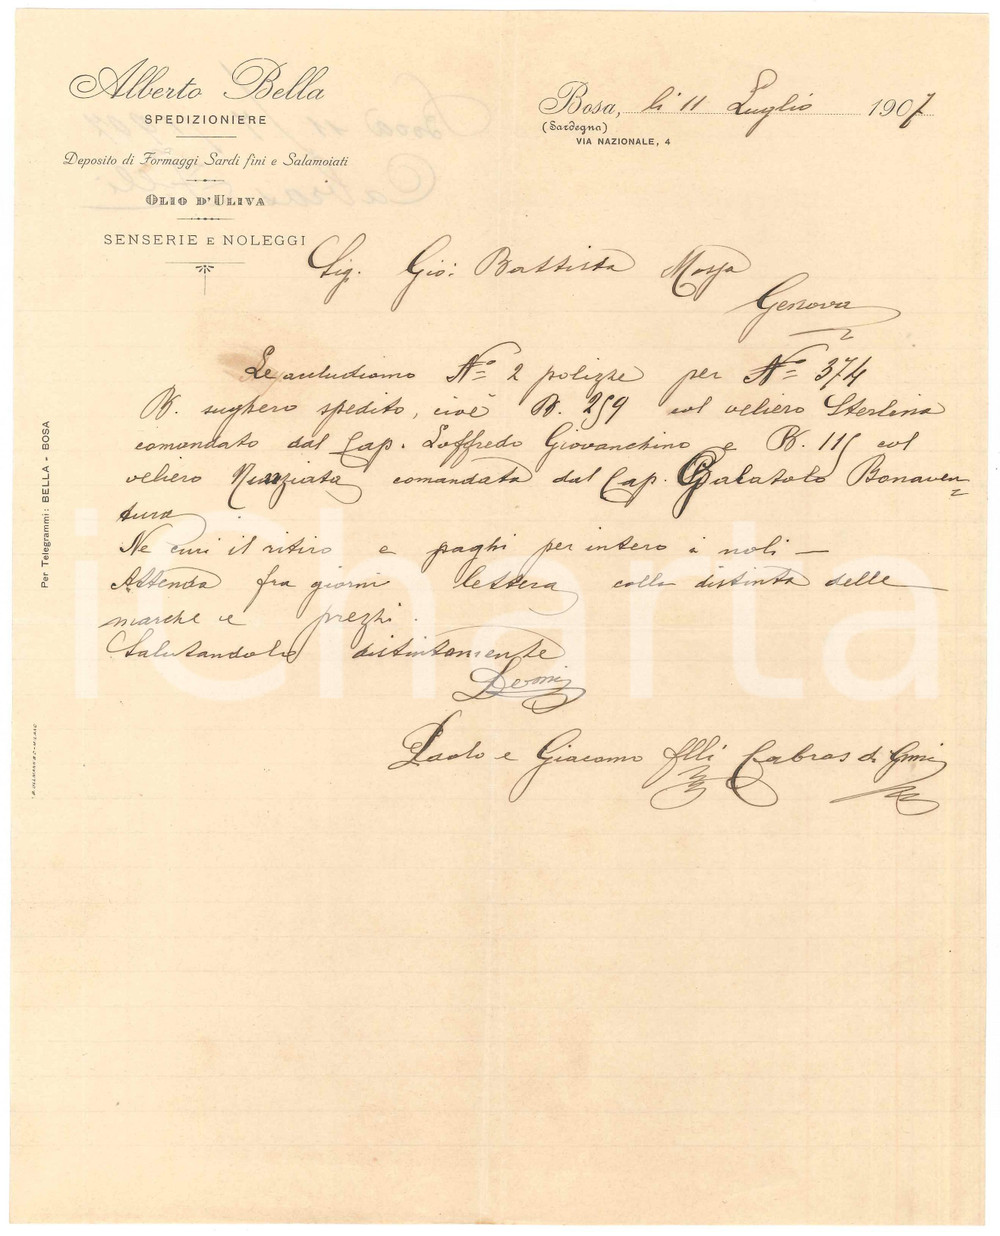 Alberto Bella
SPEDIZIONIERE
Deposito di Formaggi Sardi fini e Salamoiati
OLIO D'ULIVA
SENSERIE E NOLEGGI
Bosa, li 11 Luglio 1907
(Sardegna)
VIA NAZIONALE, 4
Sig. Gio: Battista Mossa
Genova
Le accludiamo No = 2 polizze per No = 374
B. sughero spedito, cioè B. 259 col veliero Sterlina
comandato dal Cap. Loffredo Giovanchino e B. 115 col
veliero Nunziata comandata dal Cap. Galatolo Bonaven=
tura
Ne curi il ritiro e paghi per intero i noli —
Attenda fra giorni lettera colla distinta delle
marche e prezzi.
Salutandola distintamente
Paolo e Giacomo flli Cabras di Gmi
Per Telegrammi: BELLA - BOSA
iCharta